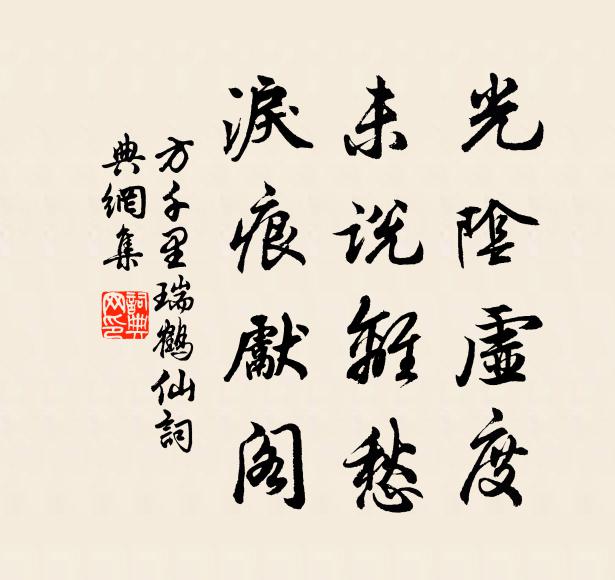 光陰虛度
未說離愁
淚痕獻閣
方千里瑞鶴仙詞
典網集
詞典網印